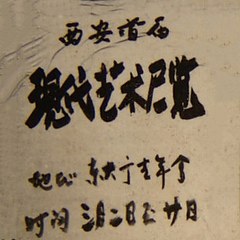 西安首届
现代艺术展览
地址 东大街青年会
时间 三月二日至廿日